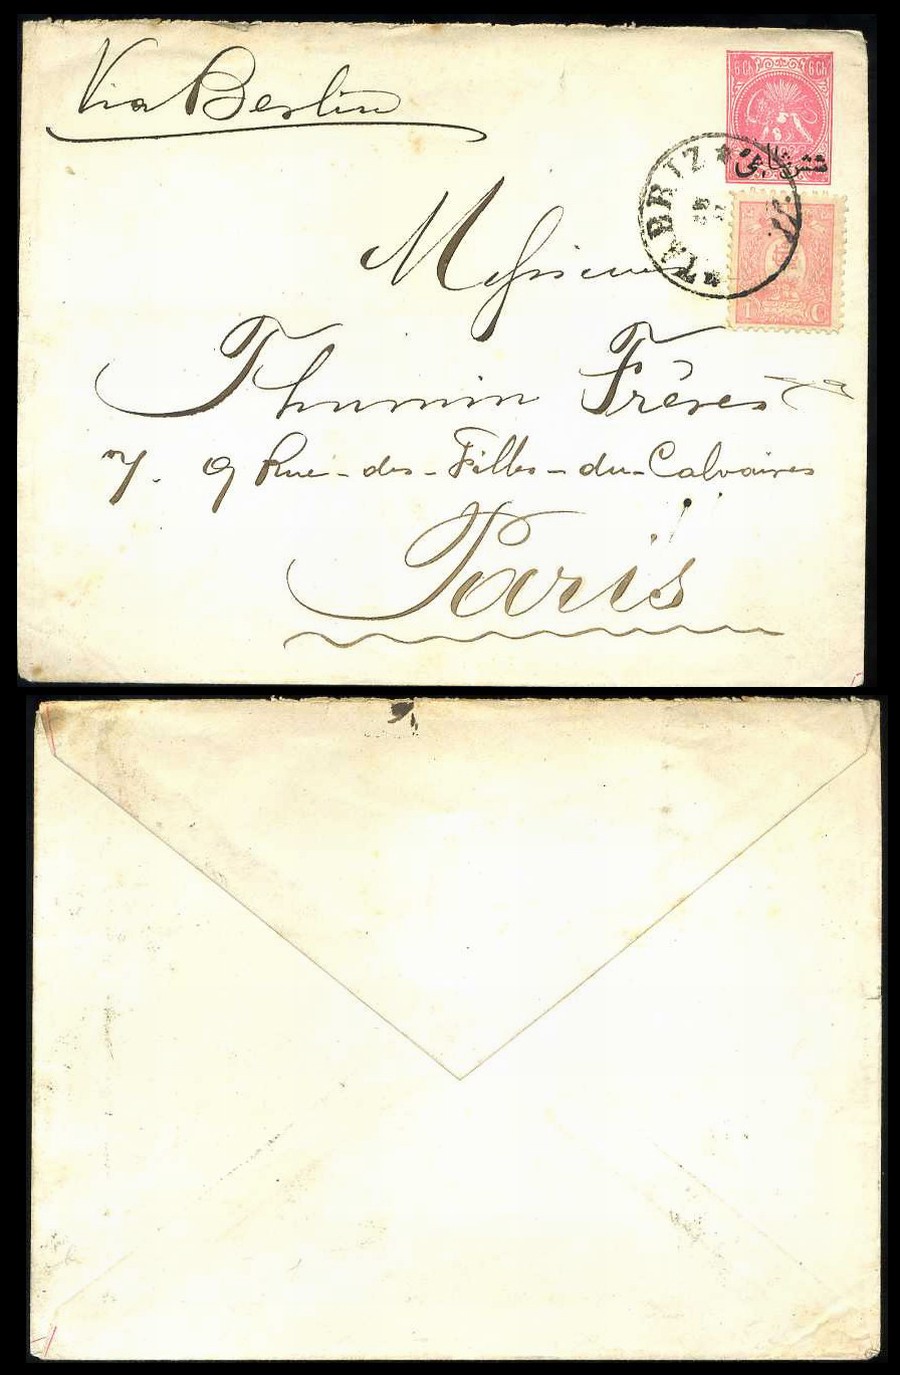 Via Berlin
6 Ch 6 Ch
شش شاهی
TABRIZ
Messieurs
Thumin Frères
7. 9 Rue-des-Filles-du-Calvaires
1 C
Paris